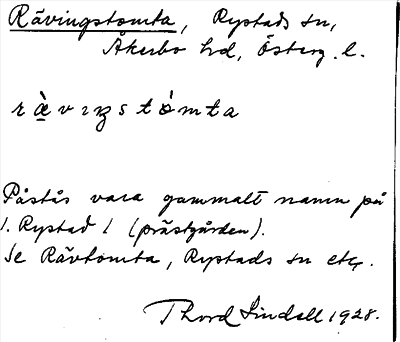 Rävingstomta, Rystads sn,
Åkerbo hd, Österg. l.
r æ̀ v ı ŋ s t ò m t a
Påstås vara gammalt namn på
1. Rystad 1 (prästgården).
Se Rävtomta, Rystads sn etc.
Thord Lindell 1928.